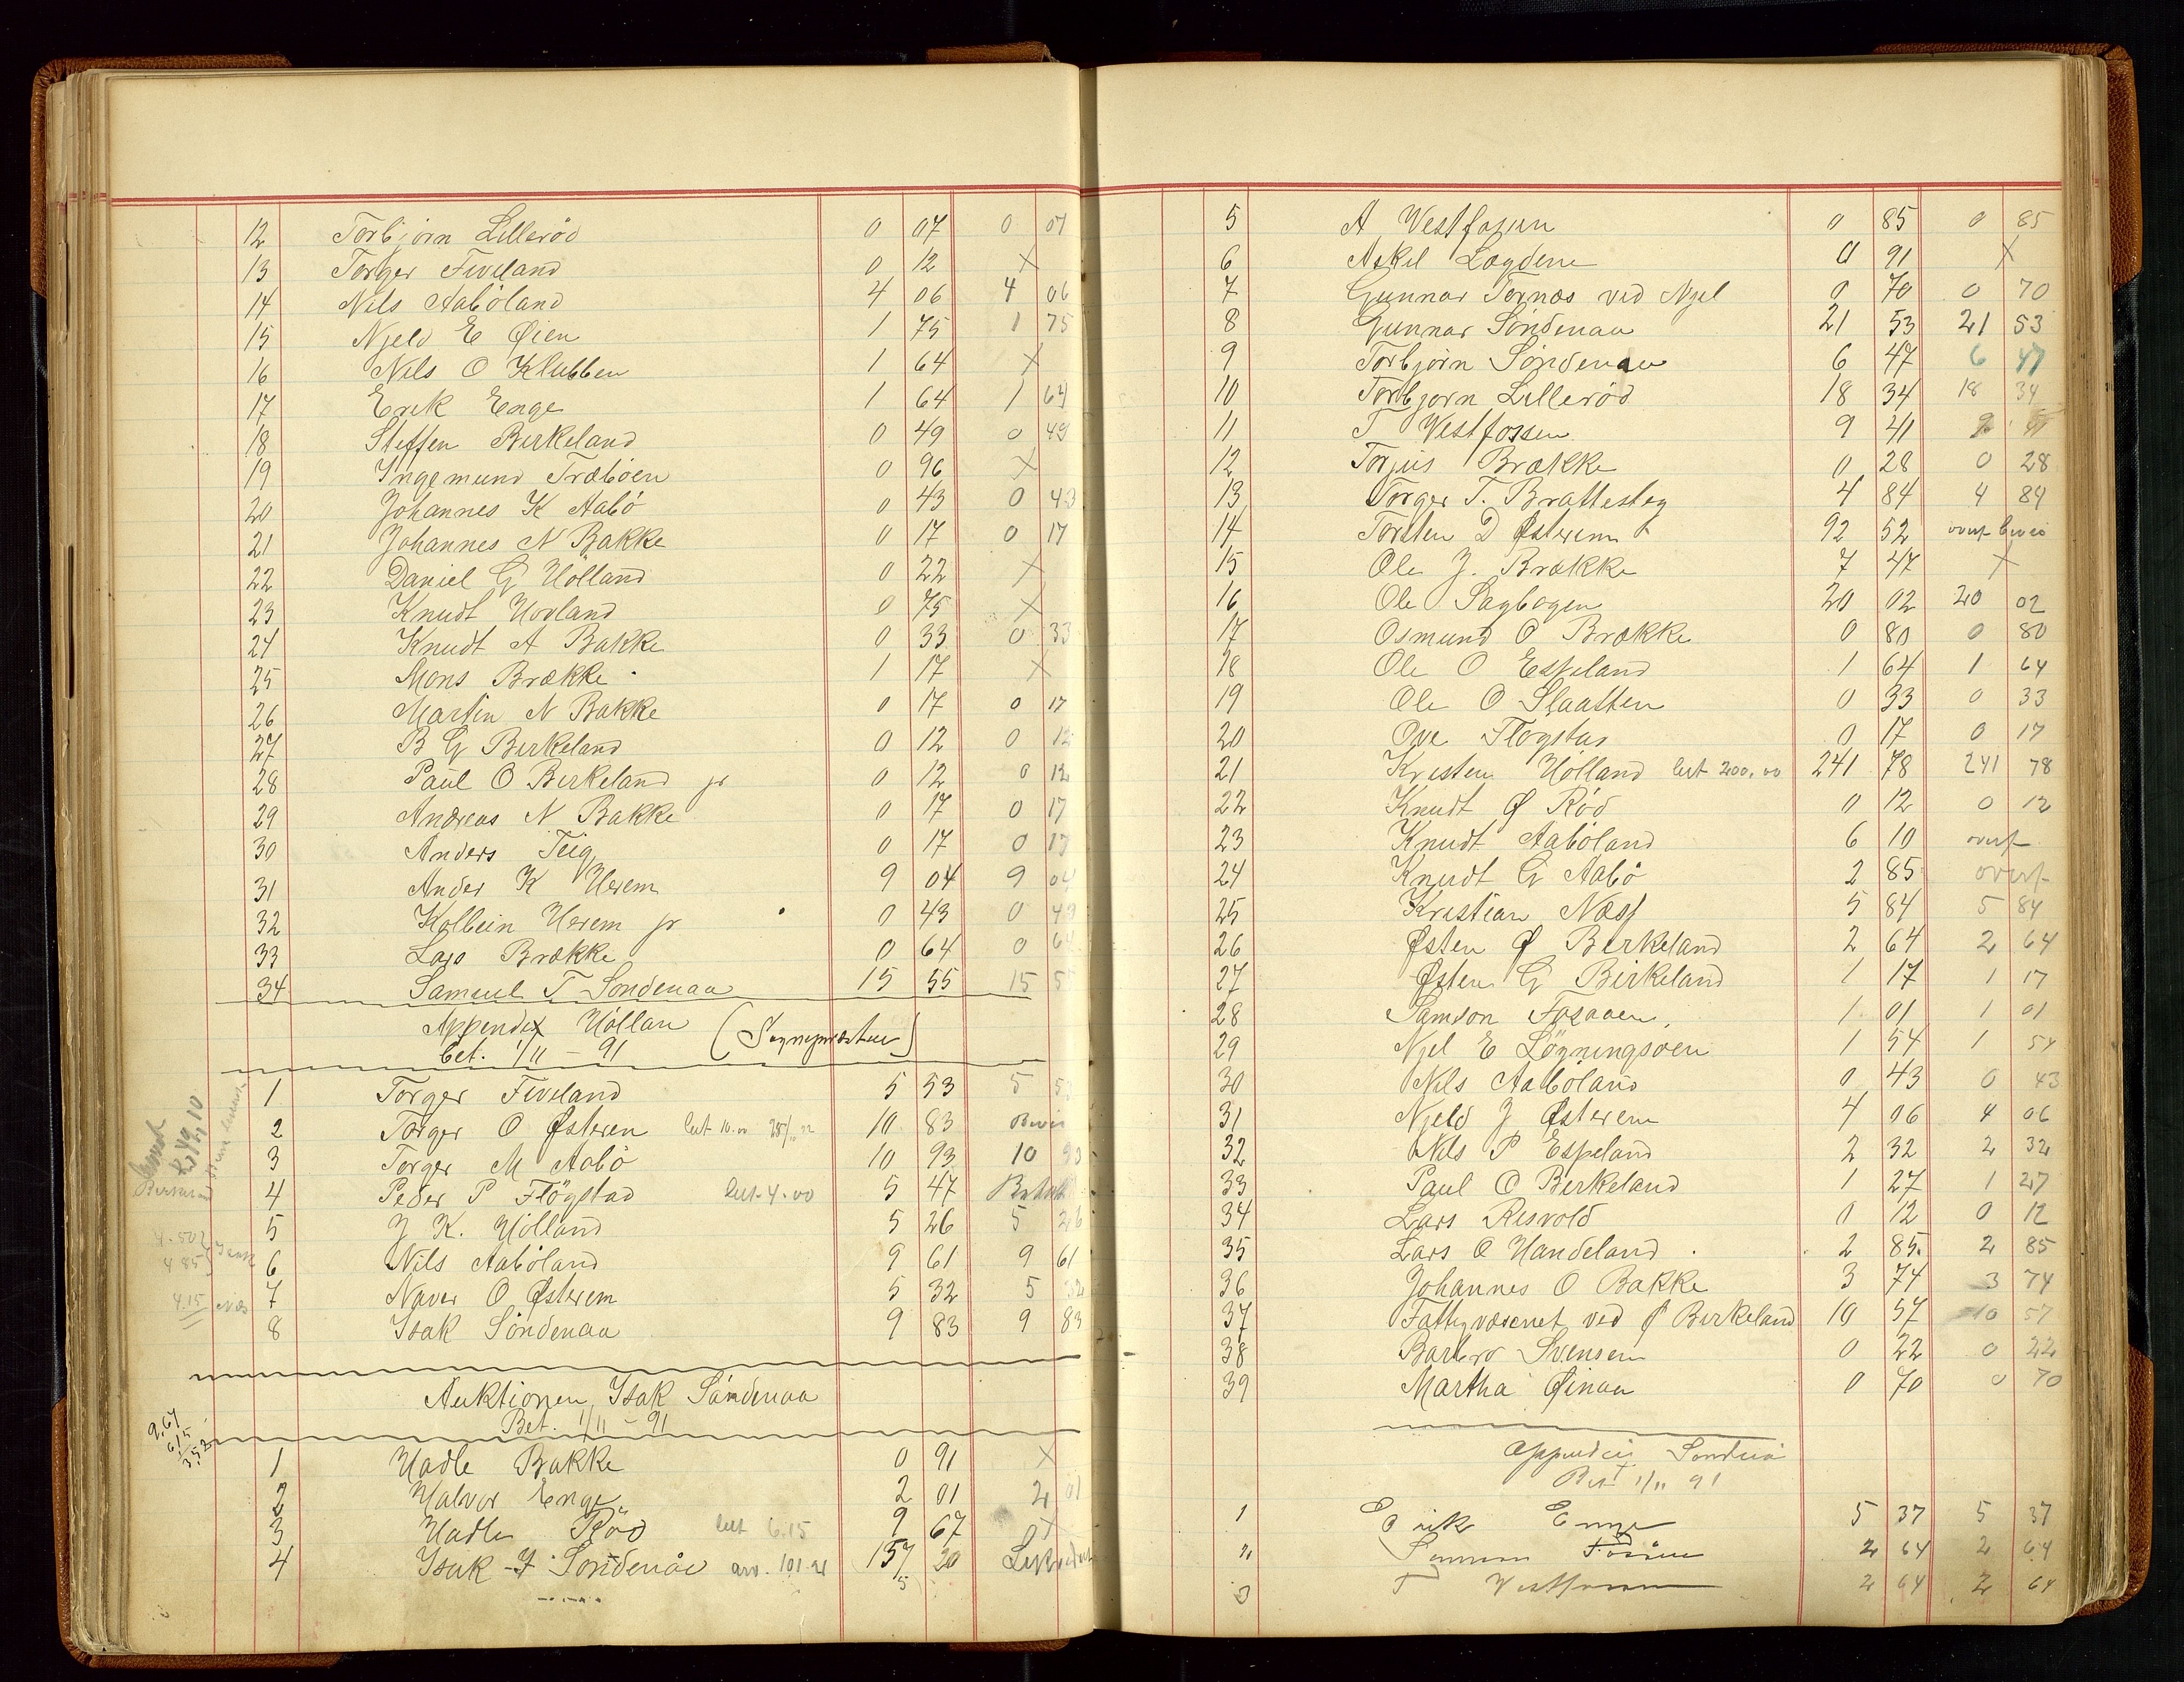 12 Torbjörn Lilleröd 0 07 0 07
13 Torger Fiveland 0 12 X
14 Nils Aaböland 4 06 4 06
15 Njeld E Øien 1 75 1 75
16 Nils O Klubben 1 64 X
17 Erik Enge 1 64 1 64
18 Steffen Birkeland 0 49 0 49
19 Ingemund Træböen 0 96 X
20 Johannes K Aabö 0 43 0 43
21 Johannes N Bakke 0 17 0 17
22 Daniel G Hölland 0 22 X
23 Knudt Hovland 0 75 X
24 Knudt A Bakke 0 33 0 33
25 Mons Brække 1 17 X
26 Martin N Bakke 0 17 0 17
27 B G Birkeland 0 12 0 12
28 Paul O Birkeland jr 0 12 0 12
29 Andreas N Bakke 0 17 0 17
30 Anders Teig 0 17 0 17
31 Ander K Herem 9 04 9 04
32 Kolbein Herem jr 0 43 0 43
33 Lars Brække 0 64 0 64
34 Samuel T Söndenaa 15 55 15 55
Appendix Höllan
bet. 1/11 - 91
1 Torger Fiveland 5 53 5 53
2 Torger O Østeren 10 83
3 Torger M Aabö 10 93 10 93
4 Peder P Flögstad 5 47
5 J K. Hölland 5 26 5 26
6 Nils Aaböland 9 61 9 61
7 Naver O Østerem 5 32 5 32
8 Isak Söndenaa 9 83 9 83
Auktionen Isak Söndenaa
Bet. 1/11 - 91
1 Hadle Bakke 0 91 X
2 Halvor Enge 2 01 2 01
3 Hadle Röd 6.15 9 67 X
4 Isak Söndenåe 157 20
5 A Westfossen 0 85 0 85
6 Askel Lagdene 0 91 X
7 Gunnar Ternæs ved Njel 0 70 0 70
8 Gunnar Söndenaa 21 53 21 53
9 Torbjörn Söndenaa 6 47 6 47
10 Torbjörn Lilleröd 18 34 18 34
11 T Westfossen 9 41
12 Torjus Brække 0 28 0 28
13 Torger T. Brattesteg 4 84 4 84
14 Torsten D Østerem 92 52
15 Ole J. Brække 7 47 X
16 Ole Sagbogen 20 02 20 02
17 Osmund O Brække 0 80 0 80
18 Ole O Espeland 1 64 1 64
19 Ole O Slaatten 0 33 0 33
20 Ove Flogstad 0 17 0 17
21 Kristen Hölland 200,00 241 78 241 78
22 Knudt Ø Röd 0 12 0 12
23 Knudt Aaböland 6 10 overf
24 Knudt G Aabö 2 85 overf
25 Kristian Næss 5 84 5 84
26 Østen Ø Birkeland 2 64 2 64
27 Østen G Birkeland 1 17 1 17
28 Samson 1 01 1 01
29 Njel E Lögningsoen 1 54 1 54
30 Nils Aaböland 0 43 0 43
31 Njeld J Østerem 4 06 4 06
32 Nils P Espeland 2 32 2 32
33 Paul O Birkeland 1 27 1 27
34 Lars Risvold 0 12 0 12
35 Lars O Handeland 2 85 2 85
36 Johannes O Bakke 3 74 3 74
37 Fattigvæsenet ved Ø Birkeland 10 57 10 57
38 Barbro Svensen 0 22 0 22
39 Martha Øinaa 0 70 0 70
Appendix
Bet 1/11 91
1 Erik Enge 5 37 5 37
2 64 2 64
3 T Westfossen 2 64 2 64